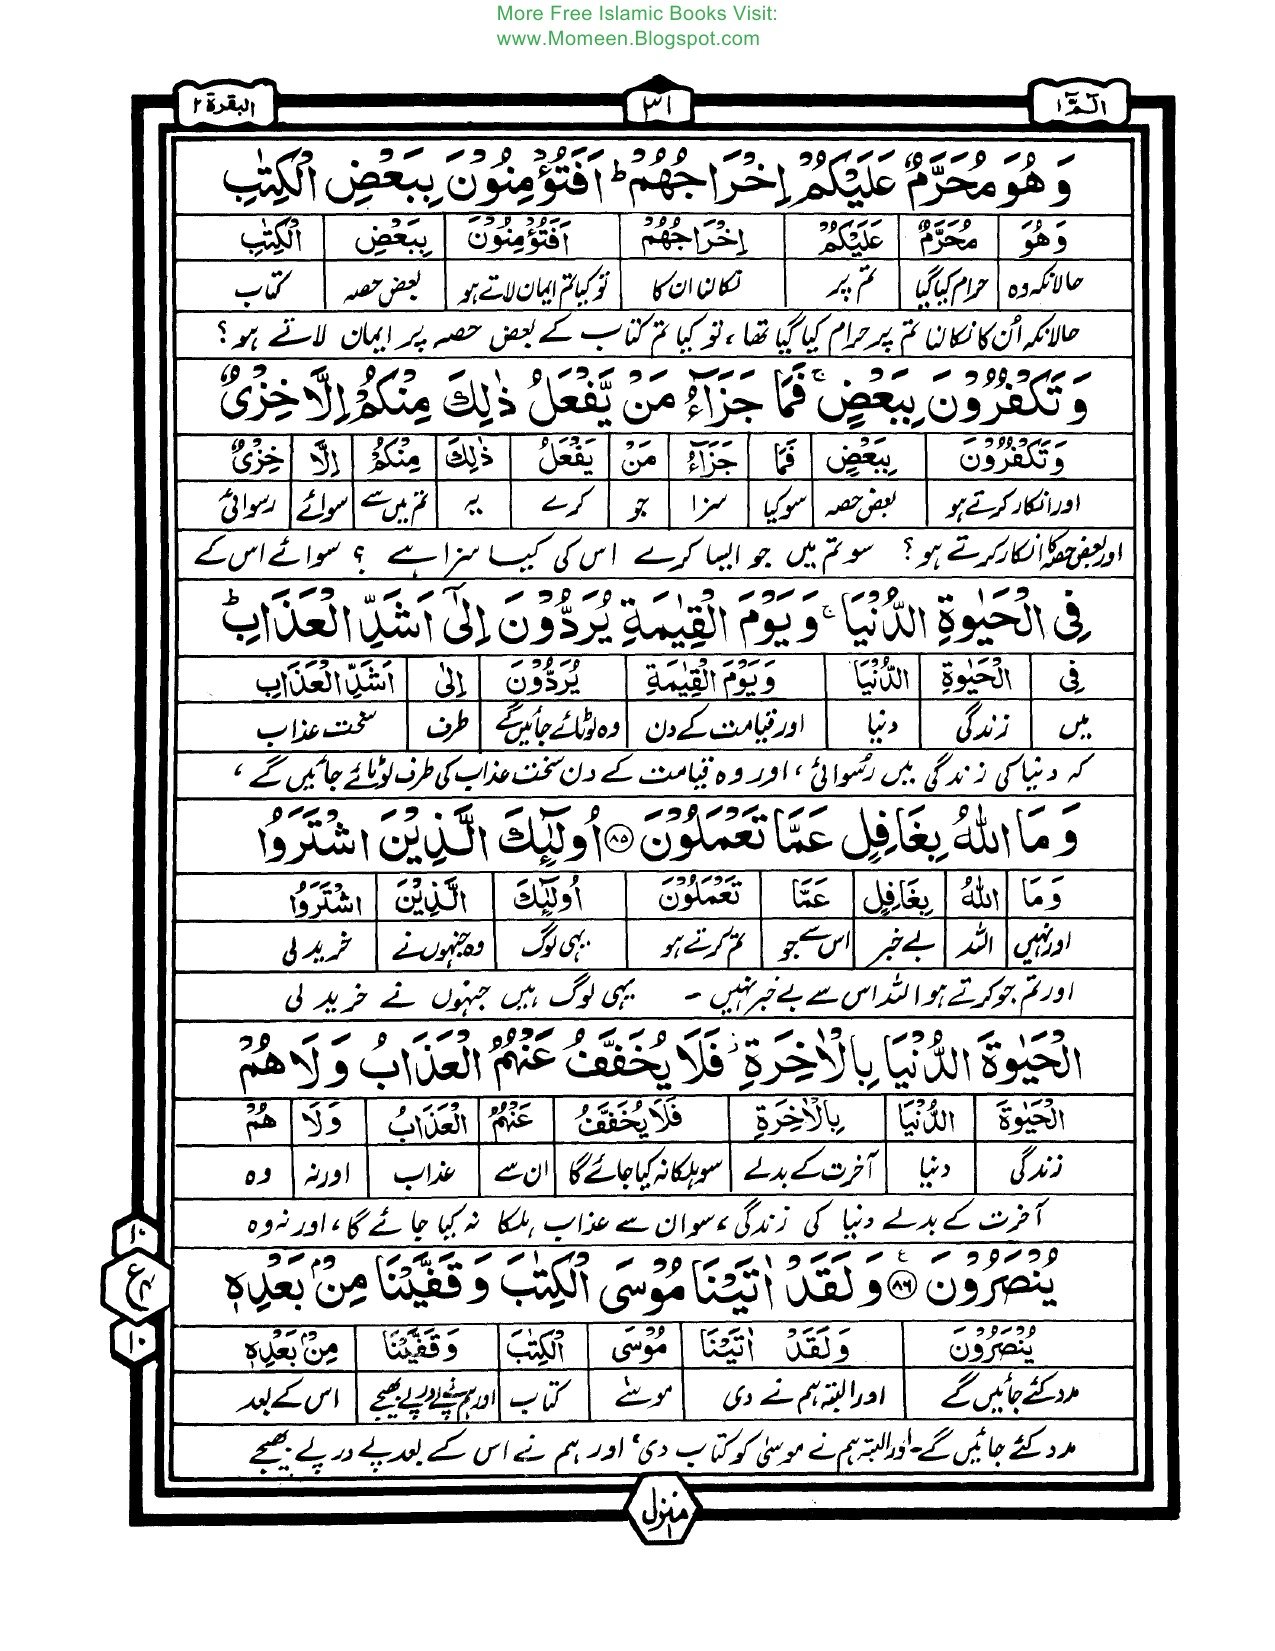 More Free Islamic Books Visit:
www.Momeen.Blogspot.com
الٓمّٓ ١ ٣١ البقرة ٢
وَ هُوَ مُحَرَّمٌ عَلَيْكُمْ اِخْرَاجُهُمْ ؕ اَفَتُؤْمِنُوْنَ بِبَعْضِ الْكِتٰبِ
وَهُوَ مُحَرَّمٌ عَلَيْكُمْ اِخْرَاجُهُمْ اَفَتُؤْمِنُوْنَ بِبَعْضِ الْكِتٰبِ
حالانکہ وہ حرام کیا گیا تم پر نکالنا ان کا تو کیا تم ایمان لاتے ہو بعض حصہ کتاب
حالانکہ اُن کا نکالنا تم پر حرام کیا گیا تھا ، تو کیا تم کتاب کے بعض حصہ پر ایمان لاتے ہو ؟
وَ تَكْفُرُوْنَ بِبَعْضٍ ۚ فَمَا جَزَآءُ مَنْ يَّفْعَلُ ذٰلِكَ مِنْكُمْ اِلَّا خِزْىٌ
وَ تَكْفُرُوْنَ بِبَعْضٍ فَمَا جَزَآءُ مَنْ يَفْعَلُ ذٰلِكَ مِنْكُمْ اِلَّا خِزْىٌ
اور انکار کرتے ہو بعض حصہ سو کیا سزا جو کرے یہ تم میں سے سوائے رسوائی
اور بعض حصہ کا انکار کرتے ہو ؟ سو تم میں جو ایسا کرے اس کی کیا سزا ہے ؟ سوائے اس کے
فِى الْحَيٰوةِ الدُّنْيَا ۚ وَ يَوْمَ الْقِيٰمَةِ يُرَدُّوْنَ اِلٰٓى اَشَدِّ الْعَذَابِ ؕ
فِى الْحَيٰوةِ الدُّنْيَا وَ يَوْمَ الْقِيٰمَةِ يُرَدُّوْنَ اِلٰى اَشَدِّ الْعَذَابِ
میں زندگی دنیا اور قیامت کے دن وہ لوٹائے جائیں گے طرف سخت عذاب
کہ دنیا کی زندگی میں رسوائی ، اور وہ قیامت کے دن سخت عذاب کی طرف لوٹائے جائیں گے ،
وَ مَا اللّٰهُ بِغَافِلٍ عَمَّا تَعْمَلُوْنَ ۸۵ اُولٰٓئِكَ الَّذِيْنَ اشْتَرَوُا
وَ مَا اللّٰهُ بِغَافِلٍ عَمَّا تَعْمَلُوْنَ اُولٰٓئِكَ الَّذِيْنَ اشْتَرَوُا
اور نہیں اللہ بے خبر اس سے جو تم کرتے ہو یہی لوگ وہ جنہوں نے خرید لی
اور تم جو کرتے ہو اللہ اس سے بے خبر نہیں - یہی لوگ ہیں جنہوں نے خرید لی
الْحَيٰوةَ الدُّنْيَا بِالْاٰخِرَةِ ز فَلَا يُخَفَّفُ عَنْهُمُ الْعَذَابُ وَ لَا هُمْ
الْحَيٰوةَ الدُّنْيَا بِالْاٰخِرَةِ فَلَا يُخَفَّفُ عَنْهُمُ الْعَذَابُ وَلَا هُمْ
زندگی دنیا آخرت کے بدلے سو ہلکا نہ کیا جائے گا ان سے عذاب اور نہ وہ
آخرت کے بدلے دنیا کی زندگی ، سو ان سے عذاب ہلکا نہ کیا جائے گا ، اور نہ وہ
يُنْصَرُوْنَ ۸۶ ع وَ لَقَدْ اٰتَيْنَا مُوْسَى الْكِتٰبَ وَ قَفَّيْنَا مِنْۢ بَعْدِهٖ
يُنْصَرُوْنَ وَ لَقَدْ اٰتَيْنَا مُوْسَى الْكِتٰبَ وَ قَفَّيْنَا مِنْۢ بَعْدِهٖ
مدد کئے جائیں گے اور البتہ ہم نے دی موسٰے کتاب اور ہم نے پے در پے بھیجے اس کے بعد
مدد کئے جائیں گے - اور البتہ ہم نے موسٰی کو کتاب دی ، اور ہم نے اس کے بعد پے در پے بھیجے
۱۰
ع
۱۰
منزل ١